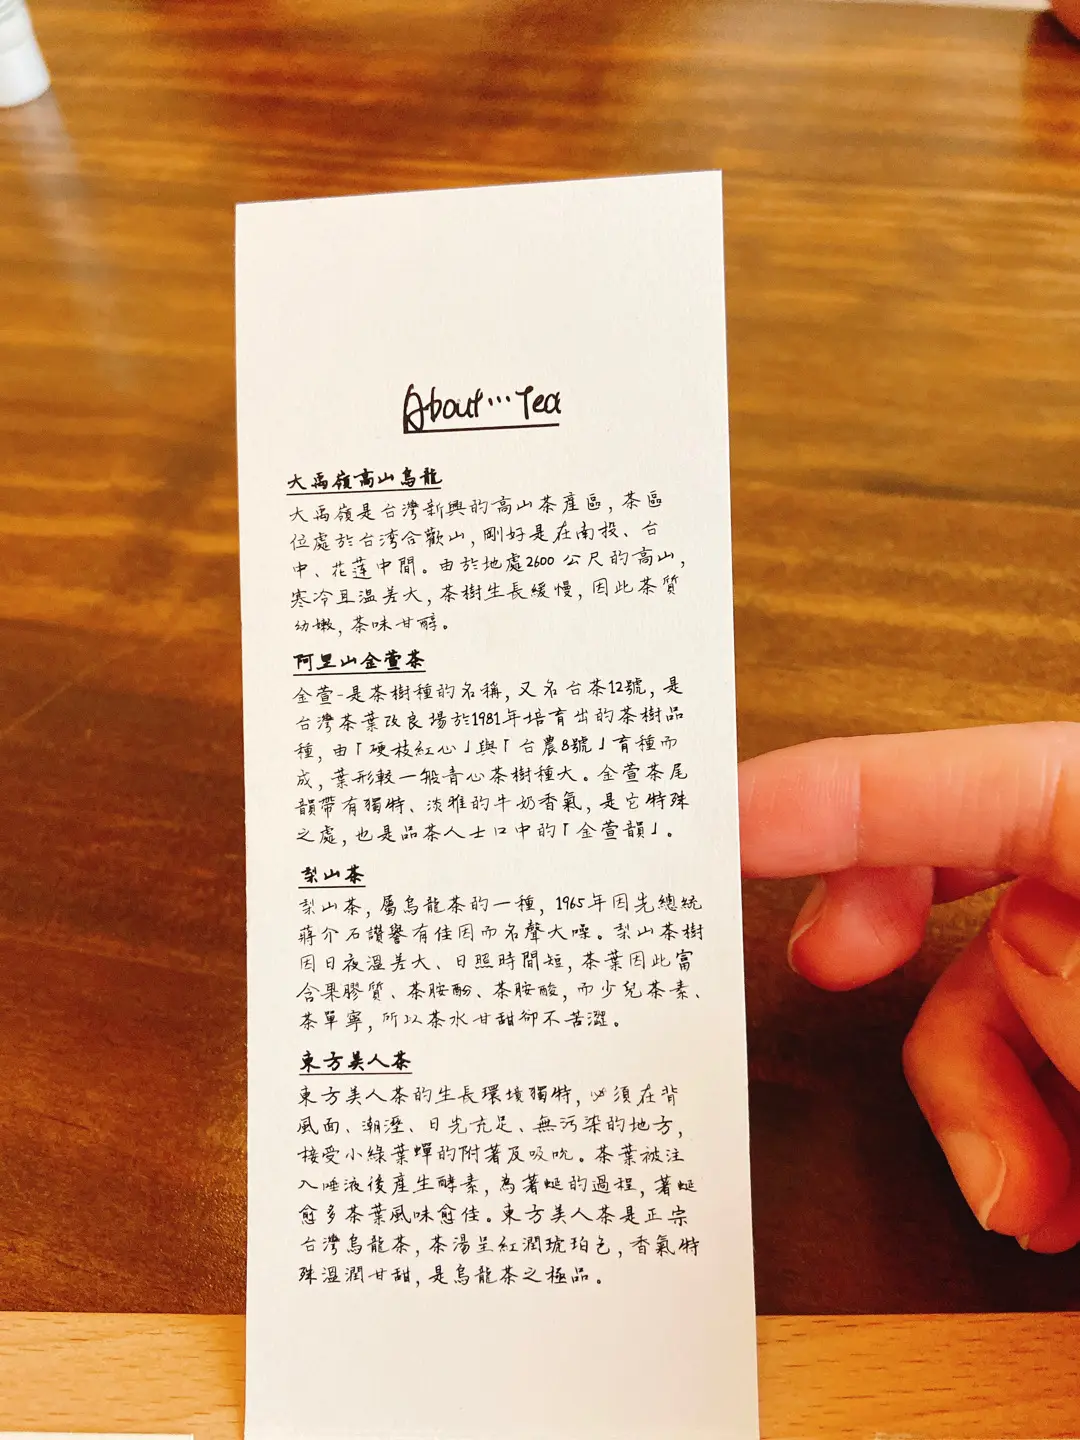 About...Tea
大禹嶺高山烏龍
大禹嶺是台灣新興的高山茶產區,茶區
位處於台湾合歡山,剛好是在南投、台
中、花莲中間。由於地處2600公尺的高山,
寒冷且溫差大,茶樹生長緩慢,因此茶質
幼嫩,茶味甘醇。
阿里山金萱茶
金萱-是茶樹種的名稱,又名台茶12號,是
台灣茶葉改良場於1981年培育出的茶樹品
種,由「硬枝紅心」與「台農8號」育種而
成,葉形較一般青心茶樹種大。金萱茶尾
韻帶有獨特、淡雅的牛奶香氣,是它特殊
之處,也是品茶人士口中的「金萱韻」。
梨山茶
梨山茶,屬烏龍茶的一種,1965年因先總統
蔣介石讚譽有佳因而名聲大噪。梨山茶樹
因日夜溫差大、日照時間短,茶葉因此富
含果膠質、茶胺酚、茶胺酸,而少兒茶素、
茶單寧,所以茶水甘甜卻不苦澀。
東方美人茶
東方美人茶的生長環境獨特,必須在背
風面、潮溼、日光充足、無污染的地方,
接受小綠葉蟬的附著及吸吮。茶葉被注
入唾液後產生酵素,為著蜒的過程,著蜒
愈多茶葉風味愈佳。東方美人茶是正宗
台灣烏龍茶,茶湯呈紅潤琥珀色,香氣特
殊溫潤甘甜,是烏龍茶之極品。